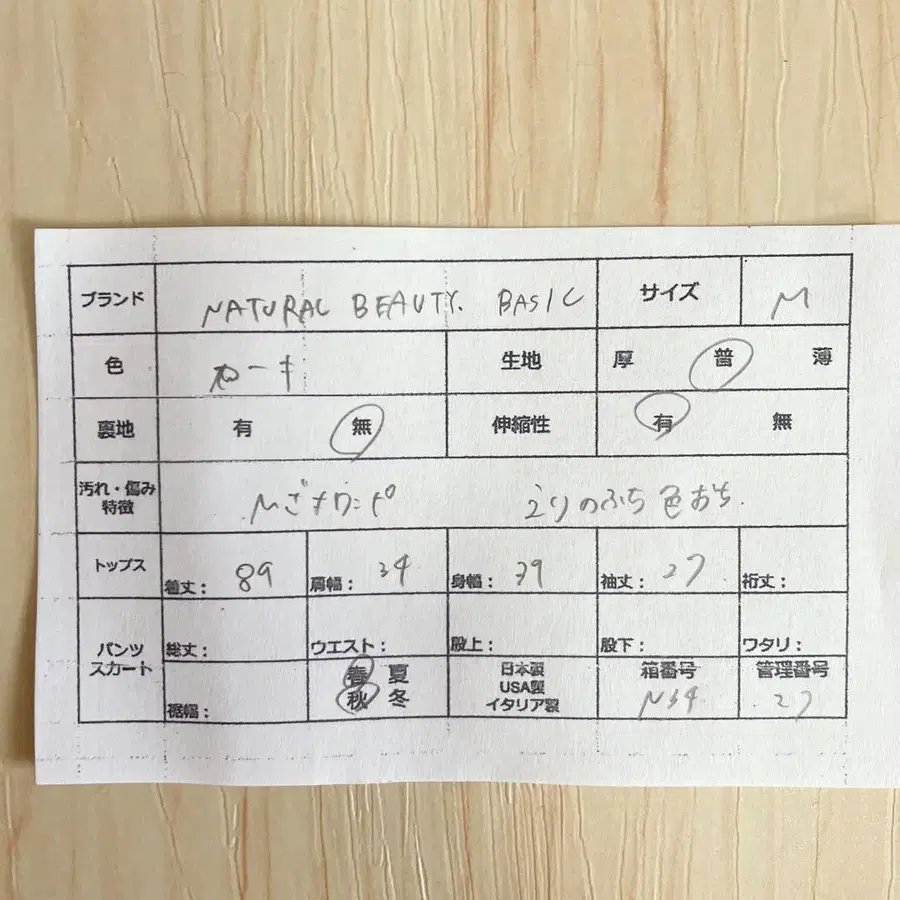 ブランド NATURAL BEAUTY. BASIC サイズ M
色 カーキ 生地 厚 普 薄
裏地 有 無 伸縮性 有 無
汚れ・傷み
特徴 えりのふち 色おち.
トップス 着丈: 89 肩幅: 34 身幅: 39 袖丈: 27 裄丈:
パンツ
スカート 総丈: ウエスト: 股上: 股下: ワタリ:
裾幅: 春 夏
秋 冬 日本製
USA製
イタリア製 箱番号
N34 管理番号
27